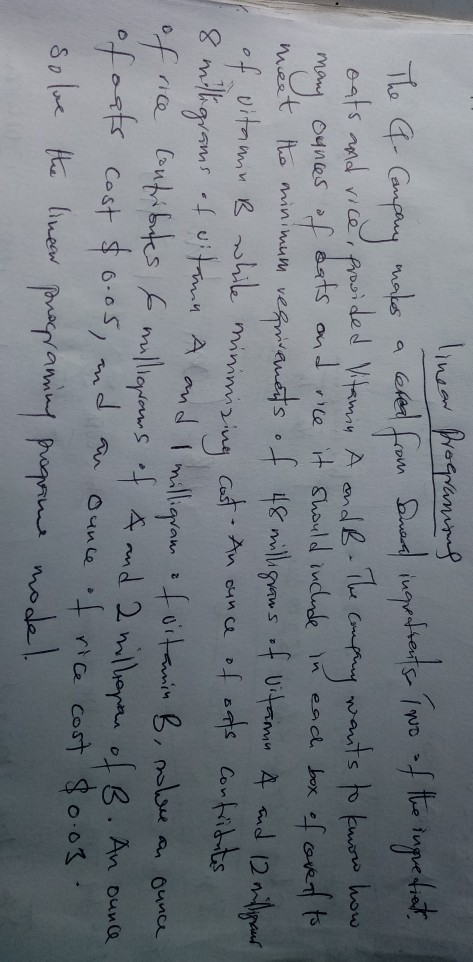 linear programming
The G- Company makes a cereal from several ingredients. Two of the ingredients.
oats and rice, provided Vitamin A and B. The company wants to know how
many ounces of oats and rice it should include in each box of cereal to
meet the minimum requirements of 48 milligrams of vitamin A and 12 milligrams
of vitamin B while minimizing cost. An ounce of oats contributes
8 milligrams of vitamin A and 1 milligram of vitamin B, while an ounce
of rice contributes 6 milligrams of A and 2 milligram of B. An ounce
of oats cost $ 0.05, and an ounce of rice cost $ 0.03.
Solve the linear programming programe model.